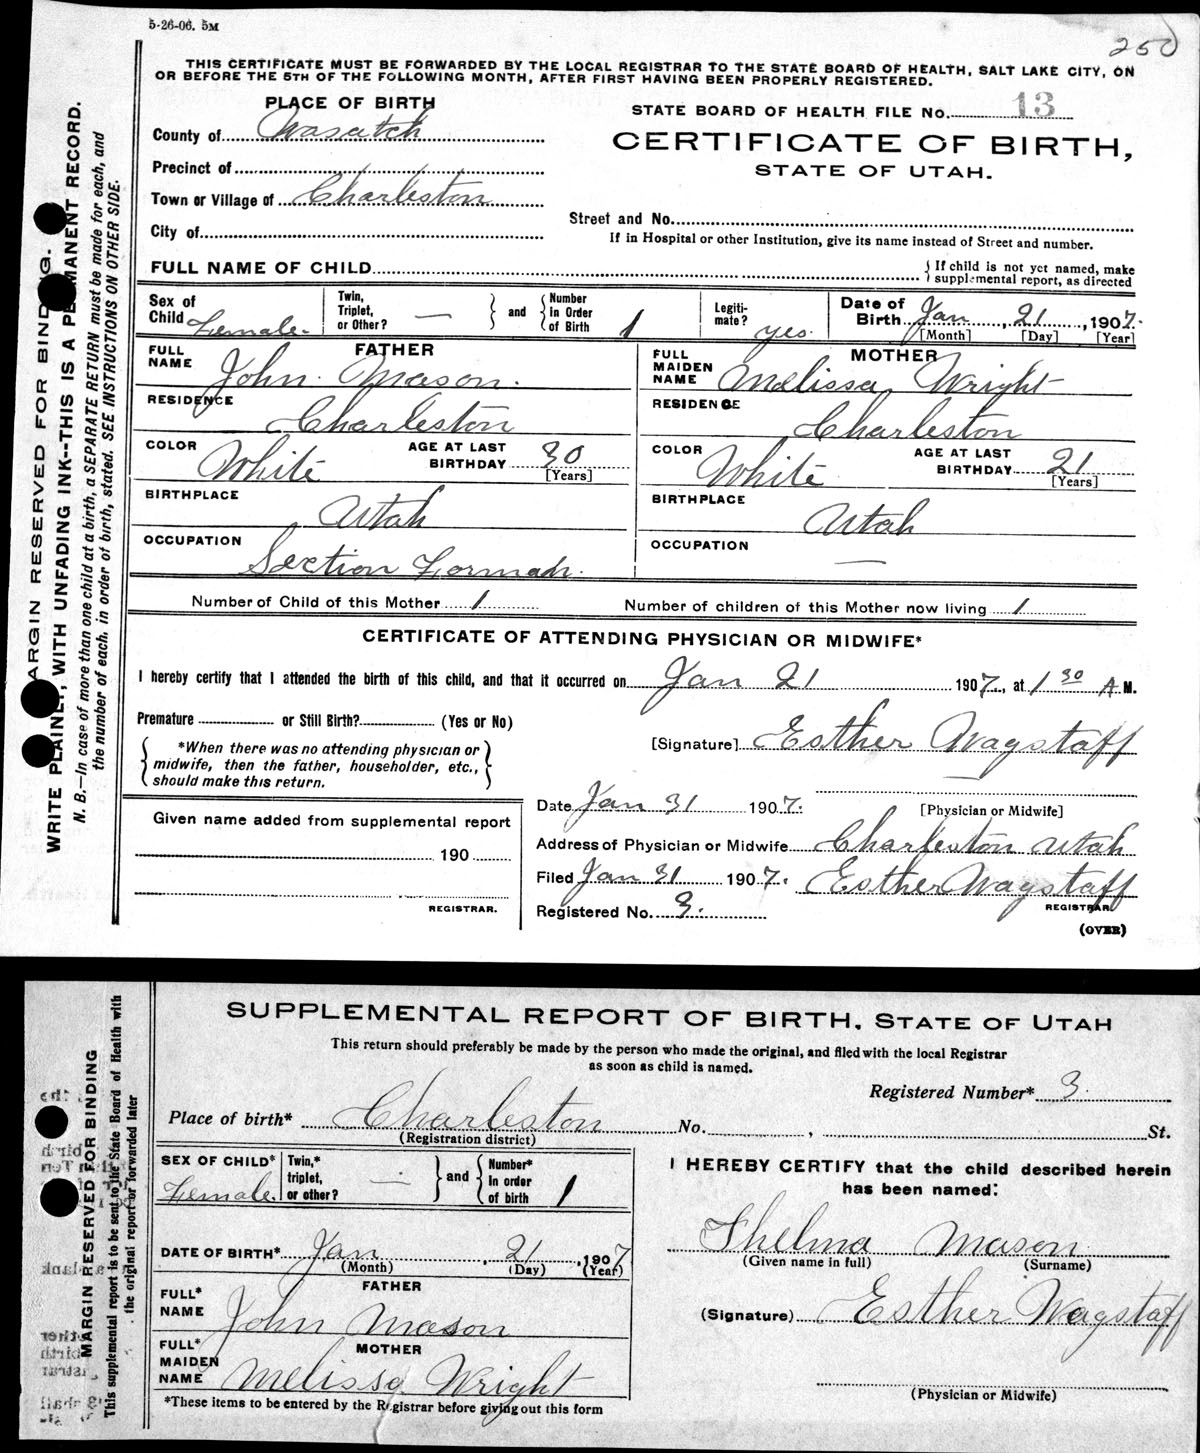 5-26-06. 5M
250
THIS CERTIFICATE MUST BE FORWARDED BY THE LOCAL REGISTRAR TO THE STATE BOARD OF HEALTH, SALT LAKE CITY, ON
OR BEFORE THE 5TH OF THE FOLLOWING MONTH, AFTER FIRST HAVING BEEN PROPERLY REGISTERED.
PLACE OF BIRTH
STATE BOARD OF HEALTH FILE No. 13
County of Wasatch
CERTIFICATE OF BIRTH,
STATE OF UTAH.
Precinct of
Town or Village of Charleston
Street and No.
City of
If in Hospital or other Institution, give its name instead of Street and number.
FULL NAME OF CHILD
If child is not yet named, make
supplemental report, as directed
Sex of Child Female
Twin, Triplet, or Other? — and Number In Order of Birth 1
Legitimate? yes
Date of Birth Jan, 21, 1907.
[Month] [Day] [Year]
FATHER
FULL NAME John Mason.
MOTHER
FULL MAIDEN NAME Melissa Wright
RESIDENCE Charleston
RESIDENCE Charleston
COLOR White AGE AT LAST BIRTHDAY 30 [Years]
COLOR White AGE AT LAST BIRTHDAY 21 [Years]
BIRTHPLACE Utah
BIRTHPLACE Utah
OCCUPATION Section Forman.
OCCUPATION —
Number of Child of this Mother 1
Number of children of this Mother now living 1
CERTIFICATE OF ATTENDING PHYSICIAN OR MIDWIFE*
I hereby certify that I attended the birth of this child, and that it occurred on Jan 21 1907., at 1 30 A M.
Premature or Still Birth? (Yes or No)
[Signature] Esther Wagstaff
*When there was no attending physician or
midwife, then the father, householder, etc.,
should make this return.
Date Jan 31 1907.
[Physician or Midwife]
Given name added from supplemental report
Address of Physician or Midwife Charleston Utah
190
Filed Jan 31 1907. Esther Wagstaff
REGISTRAR.
REGISTRAR
Registered No. 3.
(OVER)
MARGIN RESERVED FOR BINDING.
WRITE PLAINLY, WITH UNFADING INK--THIS IS A PERMANENT RECORD.
N. B.—In case of more than one child at a birth, a SEPARATE RETURN must be made for each, and
the number of each, in order of birth, stated. SEE INSTRUCTIONS ON OTHER SIDE.
SUPPLEMENTAL REPORT OF BIRTH, STATE OF UTAH
This return should preferably be made by the person who made the original, and filed with the local Registrar
as soon as child is named.
Registered Number* 3.
Place of birth* Charleston No. , St.
(Registration district)
SEX OF CHILD* Female. Twin,* triplet, or other? — and Number* In order of birth 1
I HEREBY CERTIFY that the child described herein
has been named:
Thelma Mason
(Given name in full) (Surname)
DATE OF BIRTH* Jan, 21, 1907
(Month) (Day) (Year)
FATHER
FULL* NAME John Mason
(Signature) Esther Wagstaff
MOTHER
FULL* MAIDEN NAME Melissa Wright
(Physician or Midwife)
*These items to be entered by the Registrar before giving out this form
MARGIN RESERVED FOR BINDING
This supplemental report is to be sent to the State Board of Health with
the original report or forwarded later